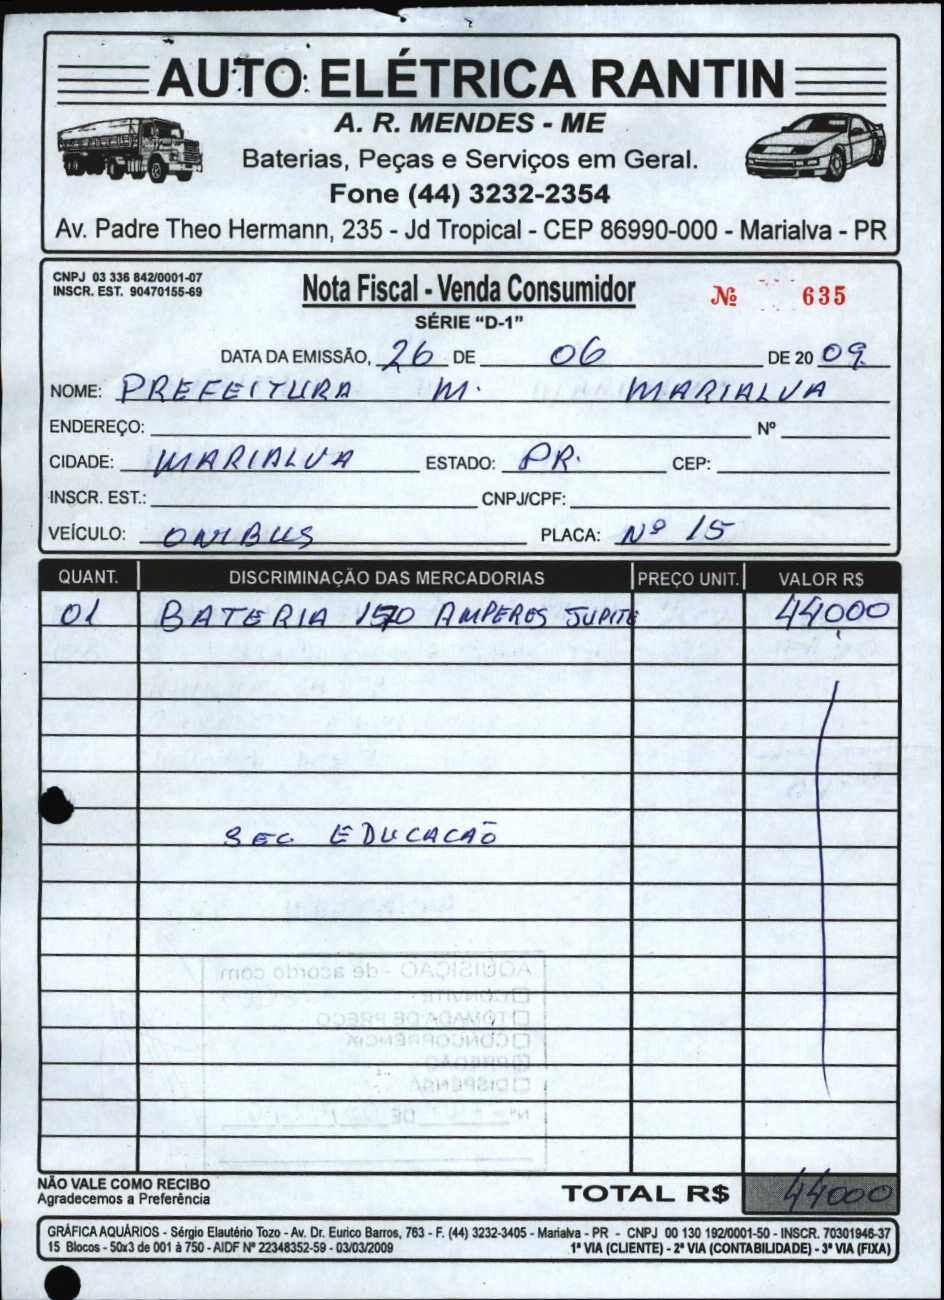 AUTO ELÉTRICA RANTIN
A. R. MENDES - ME
Baterias, Peças e Serviços em Geral.
Fone (44) 3232-2354
Av. Padre Theo Hermann, 235 - Jd Tropical - CEP 86990-000 - Marialva - PR
CNPJ 03 336 842/0001-07
INSCR. EST. 90470155-69
Nota Fiscal - Venda Consumidor
Nº 635
SÉRIE "D-1"
DATA DA EMISSÃO, 26 DE 06 DE 2009
NOME: PREFEITURA M. MARIALVA
ENDEREÇO: Nº
CIDADE: MARIALVA ESTADO: PR. CEP:
INSCR. EST.: CNPJ/CPF:
VEÍCULO: ONIBUS PLACA: Nº 15
QUANT. DISCRIMINAÇÃO DAS MERCADORIAS PREÇO UNIT. VALOR R$
01 BATERIA AMPERES JUPITE 44000
SEC EDUCACÃO
AQUISIÇÃO - de acordo com
CONVITE
TOMADA DE PREÇO
CONCORRÊNCIA
PREGÃO
DISPENSA
Nº DE
NÃO VALE COMO RECIBO
Agradecemos a Preferência
TOTAL R$ 44000
GRÁFICA AQUÁRIOS - Sérgio Elautério Tozo - Av. Dr. Eurico Barros, 763 - F. (44) 3232-3405 - Marialva - PR - CNPJ 00 130 192/0001-50 - INSCR. 70301946-37
15 Blocos - 50x3 de 001 à 750 - AIDF Nº 22348352-59 - 03/03/2009 1ª VIA (CLIENTE) - 2ª VIA (CONTABILIDADE) - 3ª VIA (FIXA)